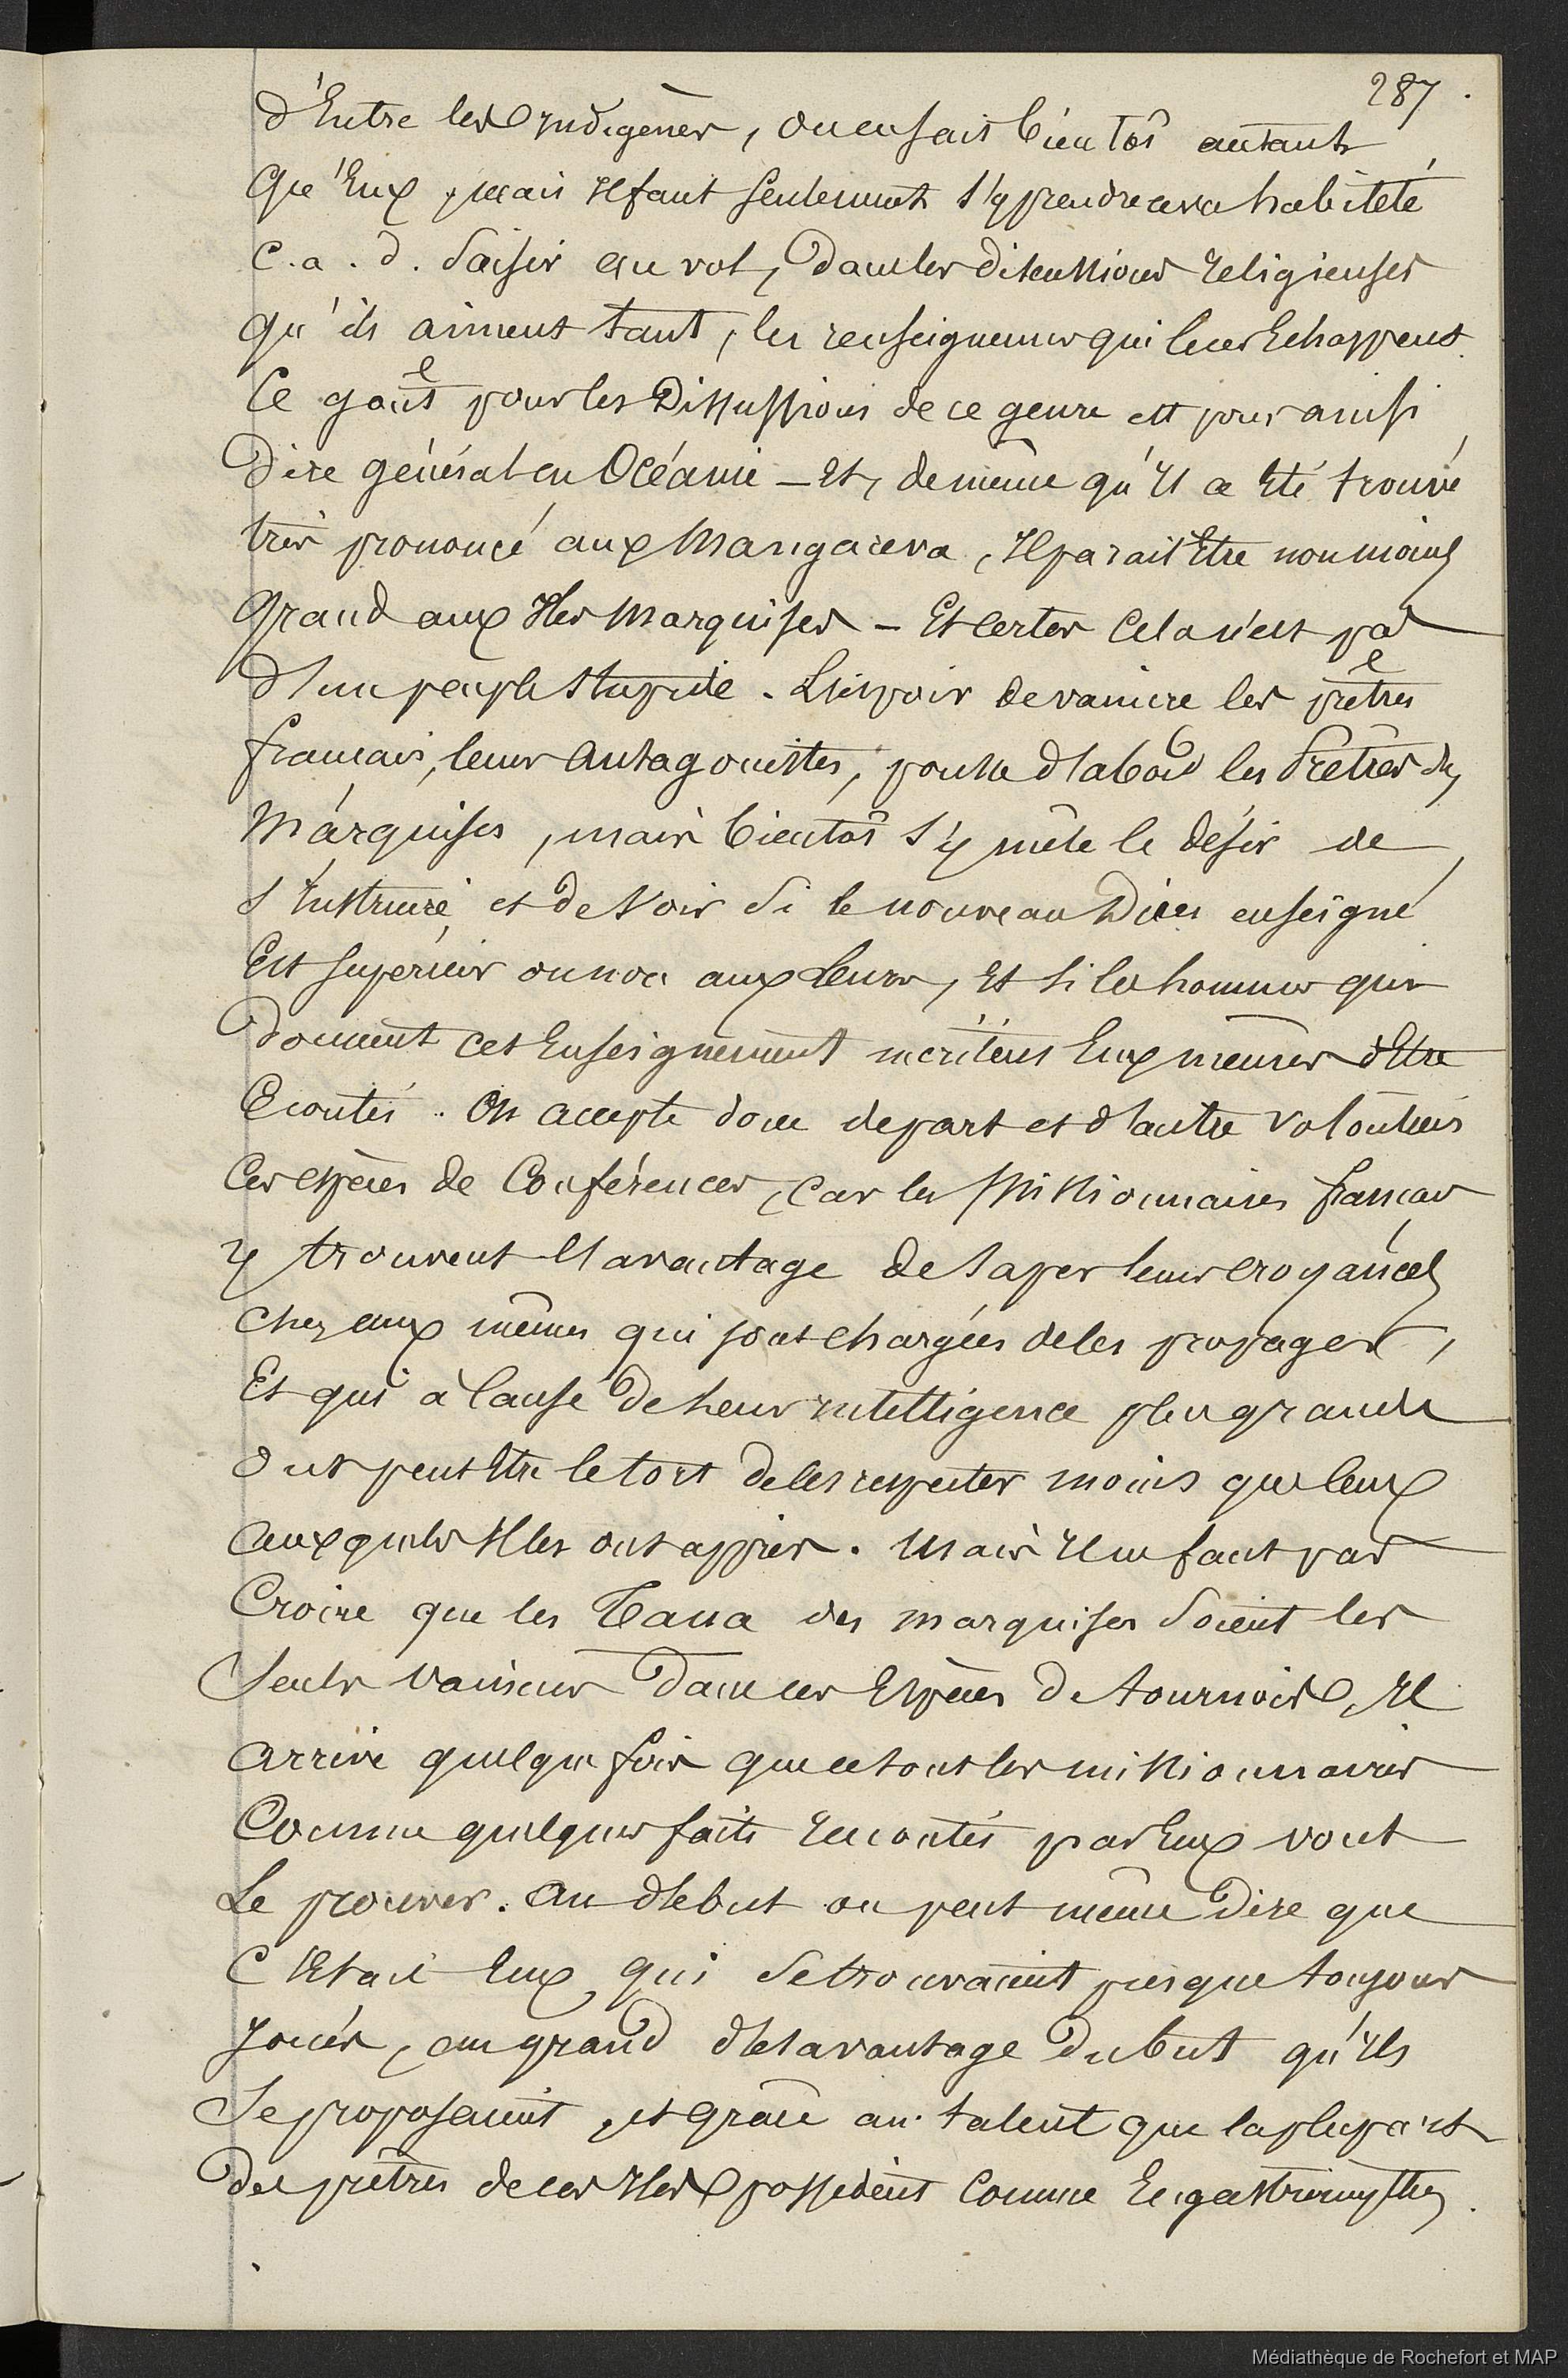 287.
d'Entre les Indigènes, on en sait bientôt autant
Qu'Eux, mais Il faut seulement s'y prendre avec habileté
C. a. d. Saisir au vol, dans les discussions religieuses
qu'ils aiment tant, les renseignemens qui leur Echappent.
Ce goût pour les Discussions de ce genre est pour ainsi
Dire général en Océanie — Et, de même qu'Il a Eté trouvé
très prononcé aux Mangareva, Il parait Etre non moins
grand aux Iles Marquises — Et certes Cela n'est pas
d'un peuple stupide. L'espoir de vaincre les prêtres
français, leurs Antagonistes, pousse d'abord les Prêtres des
Marquises, mais bientôt s'y mêle le désir de
s'Instruire et de Voir Si le nouveau Dieu enseigné
Est supérieur ou non aux Leurs, Et si les hommes qui
Donnent cet Enseignement méritent Eux mêmes d'Etre
Ecoutés. On accepte donc de part et d'autre volontiers
Ces espèces de Conférences, Car les Missionnaires français
y trouvent l'avantage de saper leurs croyances
chez ceux mêmes qui sont chargées de les propager,
Et qui à Cause de Leur intelligence plus grande
Ont peut Etre le tort de les respecter moins que Ceux
auxquels Il les ont appris. Mais Il ne faut pas
Croire que les Taua des marquises Soient les
Seuls vainqueurs dans ces Espèces de tournois, Il
arrive quelque fois que ce sont les missionnaires
Comme quelques faits racontés par Eux vont
Le prouver. Au début on peut même Dire que
C'Etait Eux qui Se trouvaient presque toujours
Joués, au grand désavantage du but qu'Ils
Se proposaient, et grâce au talent que la plupart
des prêtres de ces Iles possèdent Comme Engastrimythes.